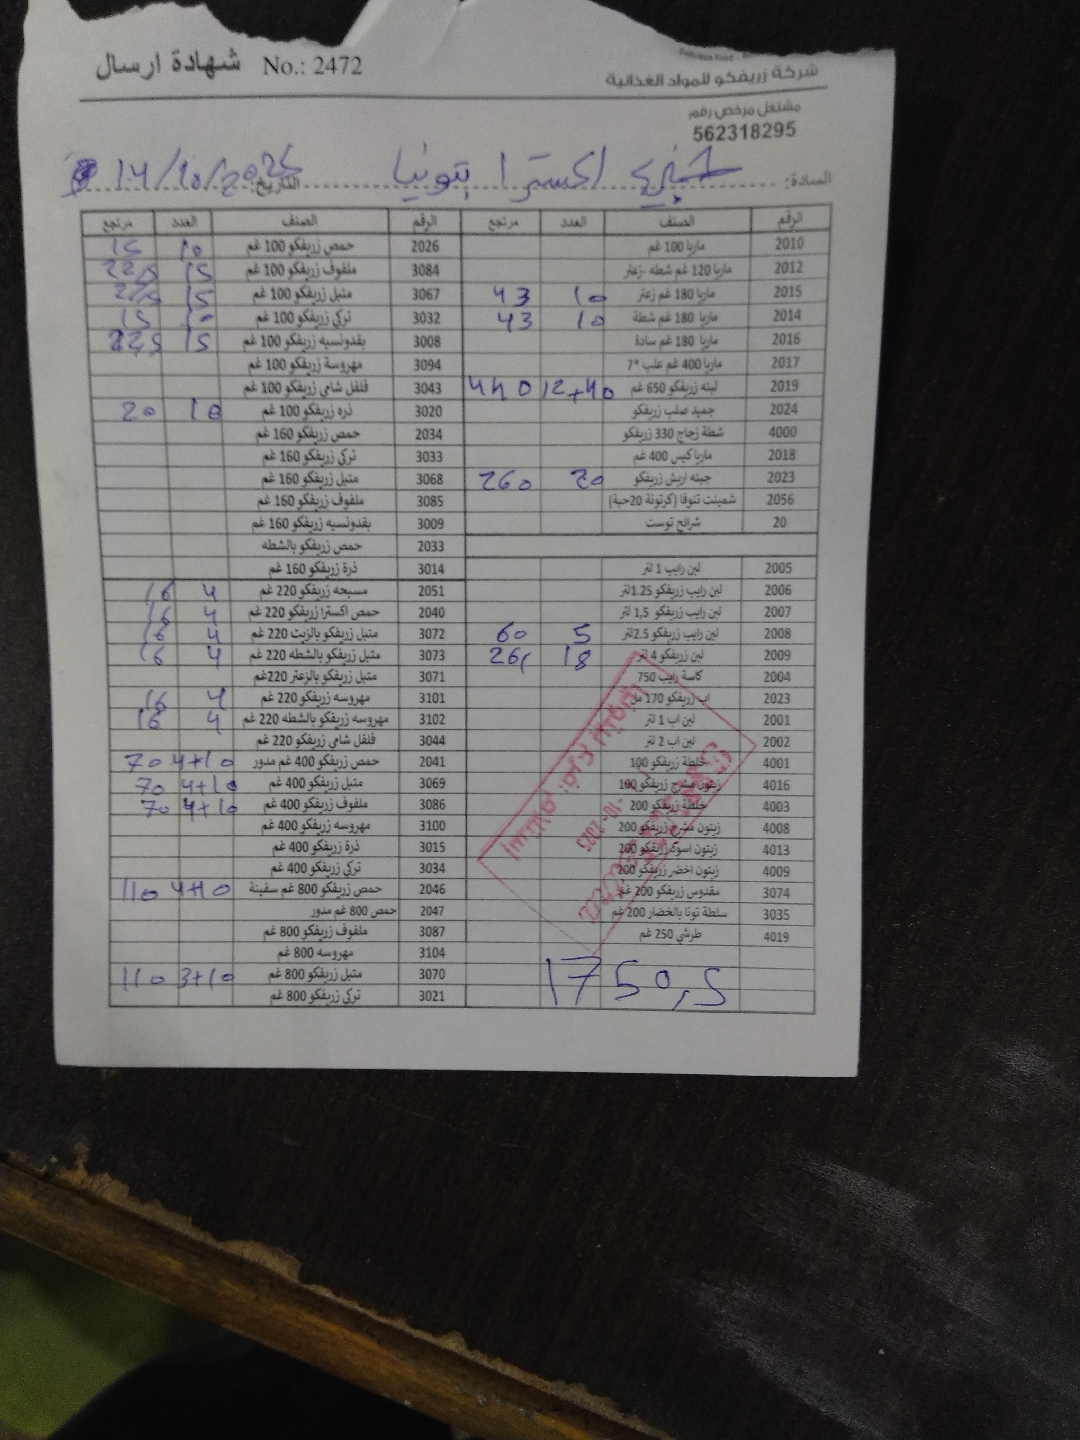 شركة زريفكو للمواد الغذائية
شهادة ارسال No.: 2472
مشتغل مرخص رقم
562318295
السادة: اكسترا بتونيا التاريخ: 14/10/2025
الرقم الصنف العدد مرتجع الرقم الصنف العدد مرتجع
2010 ماريا 100 غم 2026 حمص زريفكو 100 غم 10 15
2012 ماريا 120 غم شطه -زعتر 3084 ملفوف زريفكو 100 غم 15 22,5
2015 ماريا 180 غم زعتر 10 43 3067 متبل زريفكو 100 غم 15 22,5
2014 ماريا 180 غم شطة 10 43 3032 تركي زريفكو 100 غم 10 15
2016 ماريا 180 غم سادة 3008 بقدونسيه زريفكو 100 غم 15 22,5
2017 ماريا 400 غم علب *7 3094 مهروسة زريفكو 100 غم
2019 لبنه زريفكو 650 غم 12+40 440 3043 فلفل شامي زريفكو 100 غم
2024 جميد صلب زريفكو 3020 ذره زريفكو 100 غم 10 20
4000 شطة زجاج 330 زريفكو 2034 حمص زريفكو 160 غم
2018 ماريا كيس 400 غم 3033 تركي زريفكو 160 غم
2023 جبنه اريش زريفكو 20 260 3068 متبل زريفكو 160 غم
2056 شمينت تنوفا (كرتونة 20حبة) 3085 ملفوف زريفكو 160 غم
20 شرائح توست 3009 بقدونسيه زريفكو 160 غم
2033 حمص زريفكو بالشطه
2005 لبن رايب 1 لتر 3014 ذرة زريفكو 160 غم
2006 لبن رايب زريفكو 1.25لتر 2051 مسبحه زريفكو 220 غم 4 16
2007 لبن رايب زريفكو 1,5 لتر 2040 حمص اكسترا زريفكو 220 غم 4 16
2008 لبن رايب زريفكو 2.5لتر 5 60 3072 متبل زريفكو بالزيت 220 غم 4 16
2009 لبن زريفكو 4 لتر 18 261 3073 متبل زريفكو بالشطه 220 غم 4 16
2004 كاسة رايب 750 3071 متبل زريفكو بالزعتر 220غم
2023 اب زريفكو 170 مل 3101 مهروسه زريفكو 220 غم 4 16
2001 لبن اب 1 لتر 3102 مهروسه زريفكو بالشطه 220 غم 4 16
2002 لبن اب 2 لتر 3044 فلفل شامي زريفكو 220 غم
4001 خلطة زريفكو 100 2041 حمص زريفكو 400 غم مدور 4+10 70
4016 زيتون مشرح زريفكو 100 3069 متبل زريفكو 400 غم 4+10 70
4003 خلطة زريفكو 200 3086 ملفوف زريفكو 400 غم 4+10 70
4008 زيتون مشرح زريفكو 200 3100 مهروسه زريفكو 400 غم
4013 زيتون اسود زريفكو 200 3015 ذرة زريفكو 400 غم
4009 زيتون اخضر زريفكو 200 3034 تركي زريفكو 400 غم
3074 مقدوس زريفكو 200 غم 2046 حمص زريفكو 800 غم سفينة 4+10 110
3035 سلطة تونا بالخضار 200 غم 2047 حمص 800 غم مدور
4019 طرشي 250 غم 3087 ملفوف زريفكو 800 غم
3104 مهروسه 800 غم
1750,5 3070 متبل زريفكو 800 غم 3+10 110
3021 تركي زريفكو 800 غم